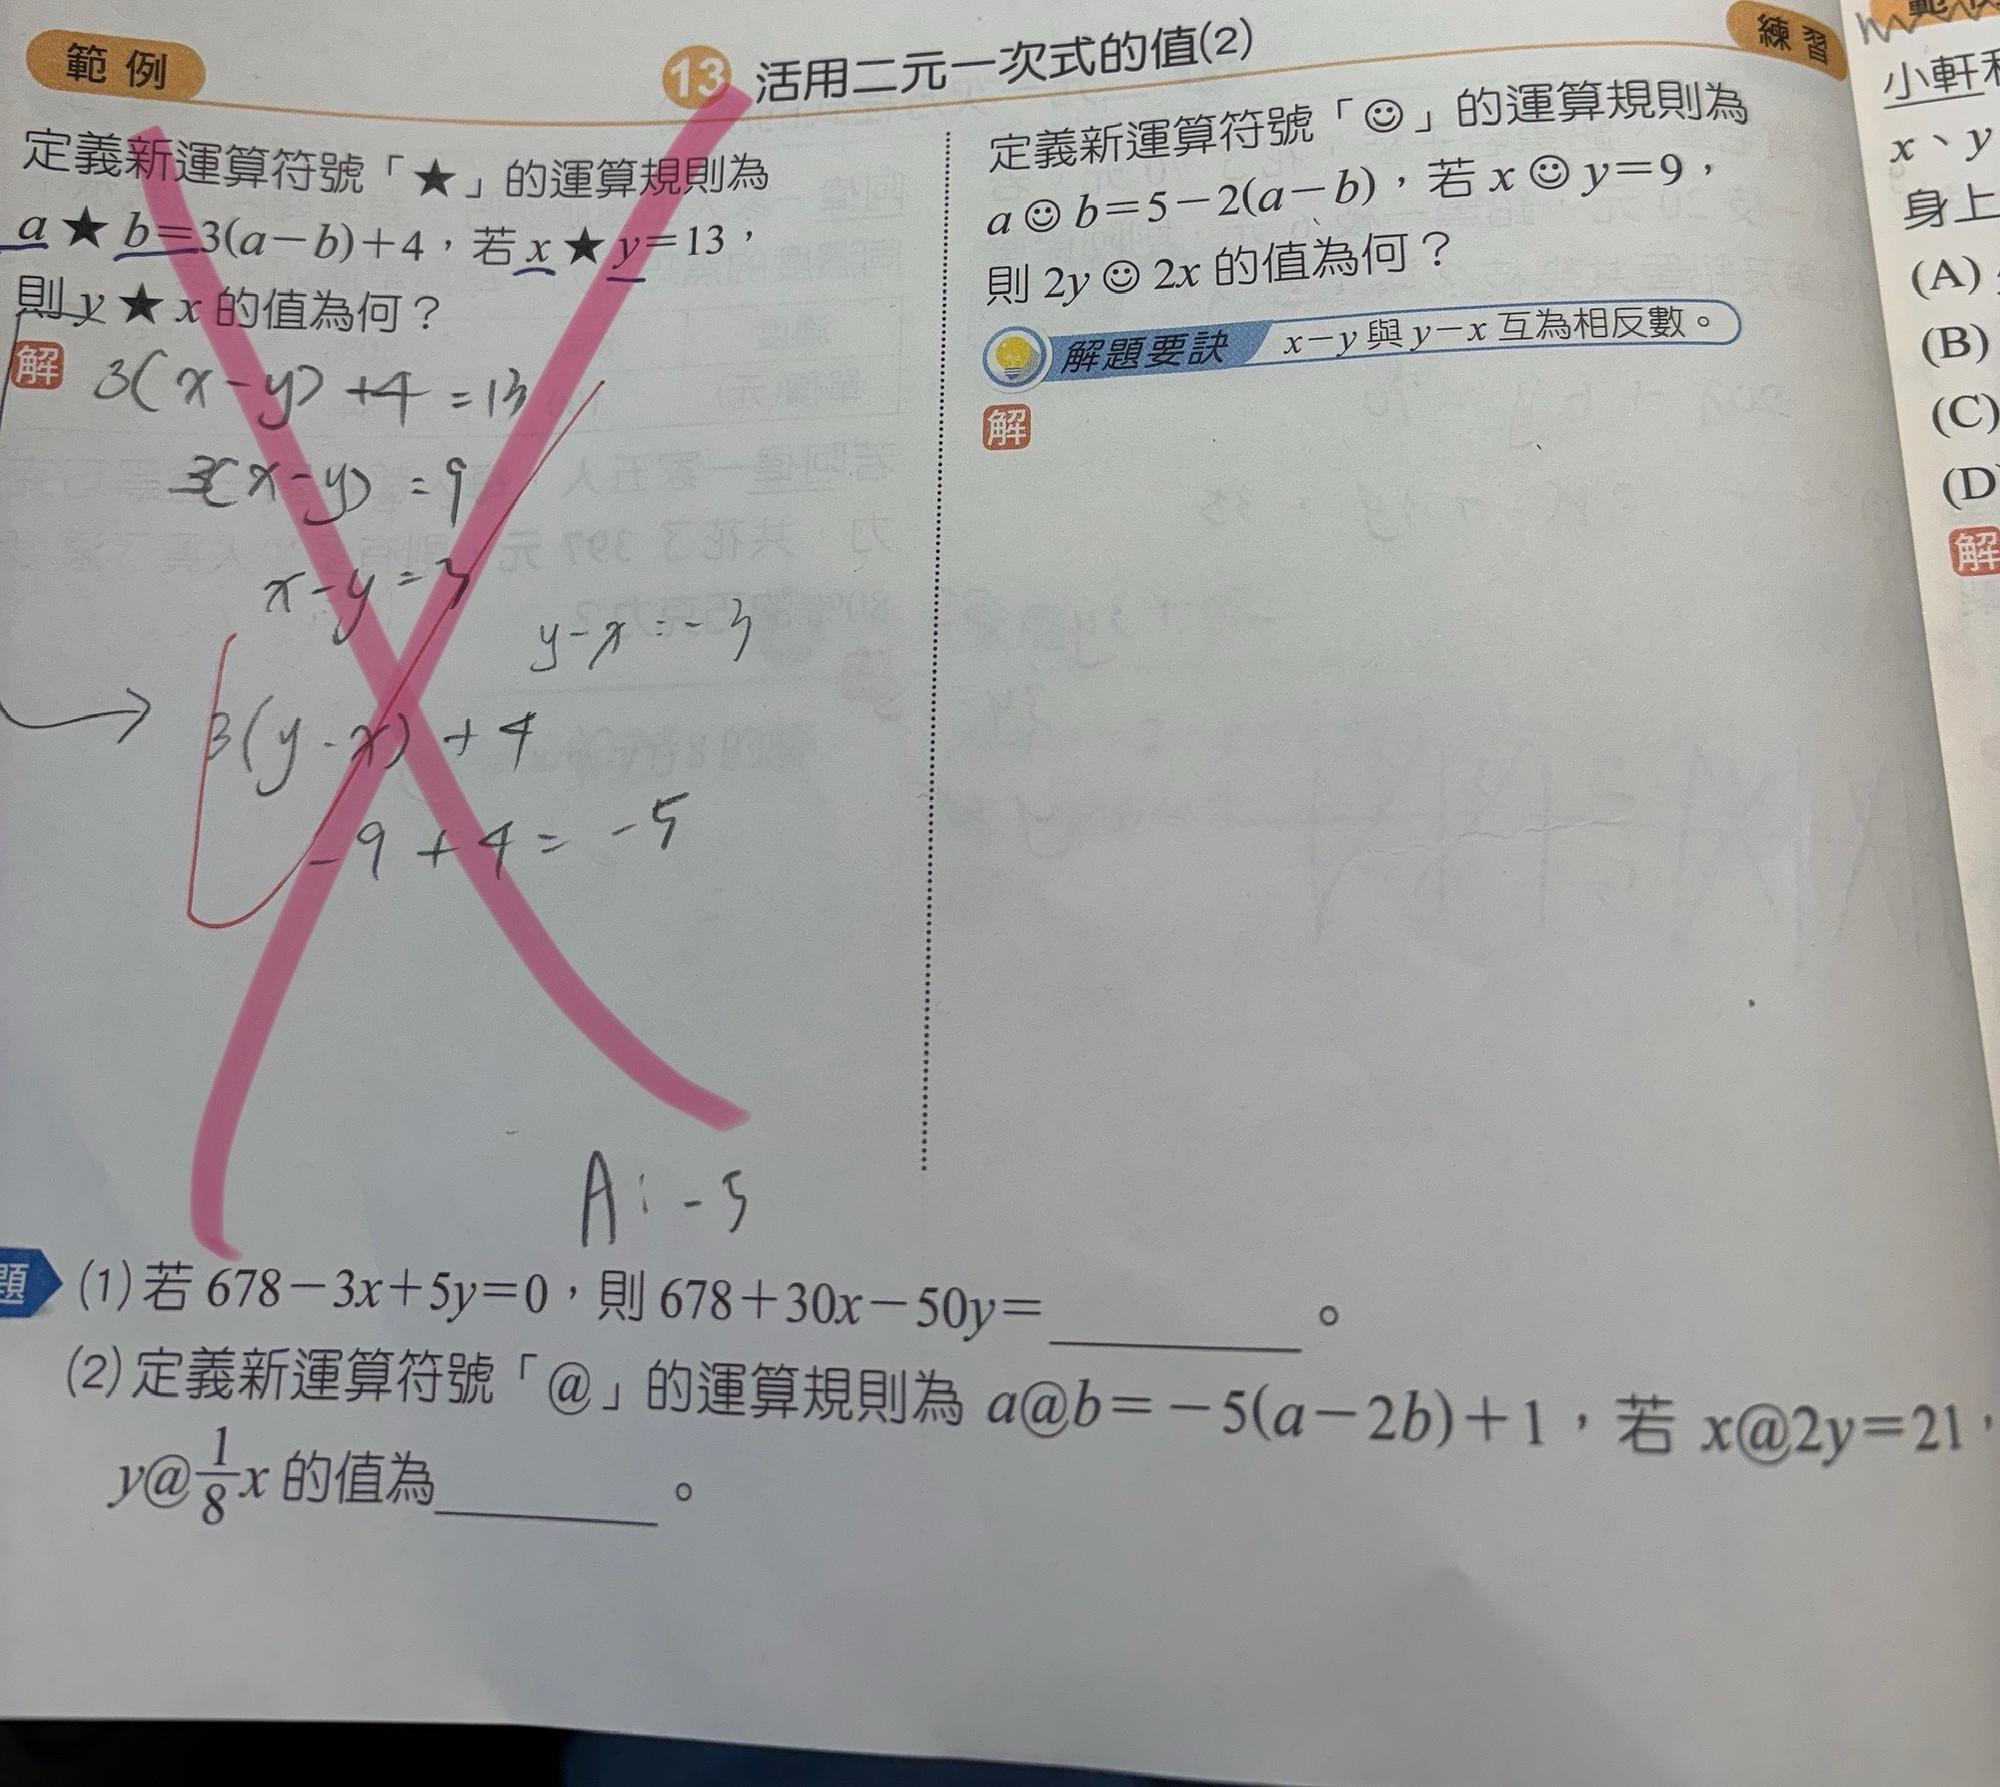 範例
13 活用二元一次式的值(2)
練習
定義新運算符號「★」的運算規則為
a★b=3(a-b)+4，若x★y=13，
則y★x的值為何？
解
3(x-y)+4=13
3(x-y)=9
x-y=3
y-x=-3
3(y-x)+4
-9+4=-5
A:-5
定義新運算符號「☺」的運算規則為
a☺b=5-2(a-b)，若x☺y=9，
則2y☺2x的值為何？
解題要訣 x-y與y-x互為相反數。
解
題 (1)若678-3x+5y=0，則678+30x-50y=______。
(2)定義新運算符號「@」的運算規則為a@b=-5(a-2b)+1，若x@2y=21，
y@1/8x的值為______。
小軒
x、y
身上
(A)
(B)
(C)
(D)
解